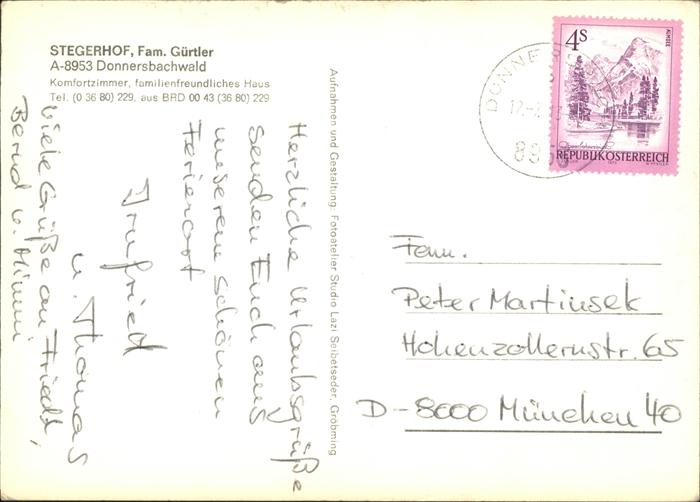 STEGERHOF, Fam. Gürtler
A-8953 Donnersbachwald
Komfortzimmer, familienfreundliches Haus
Tel. (0 36 80) 229, aus BRD 00 43 (36 80) 229
Herzliche Urlaubsgrüße
senden Euch aus
unserem schönen
Ferienort
Irmfried
u. Thomas
Viele Grüße an Friedl,
Bernd u. Mimmi
Aufnahmen und Gestaltung: Fotoatelier Studio Lazi Seibetseder, Gröbming
DONNE
12.
4S
ALMSEE
REPUBLIK ÖSTERREICH
Fam.
Peter Martinsek
Hohenzollernstr. 65
D-8000 München 40